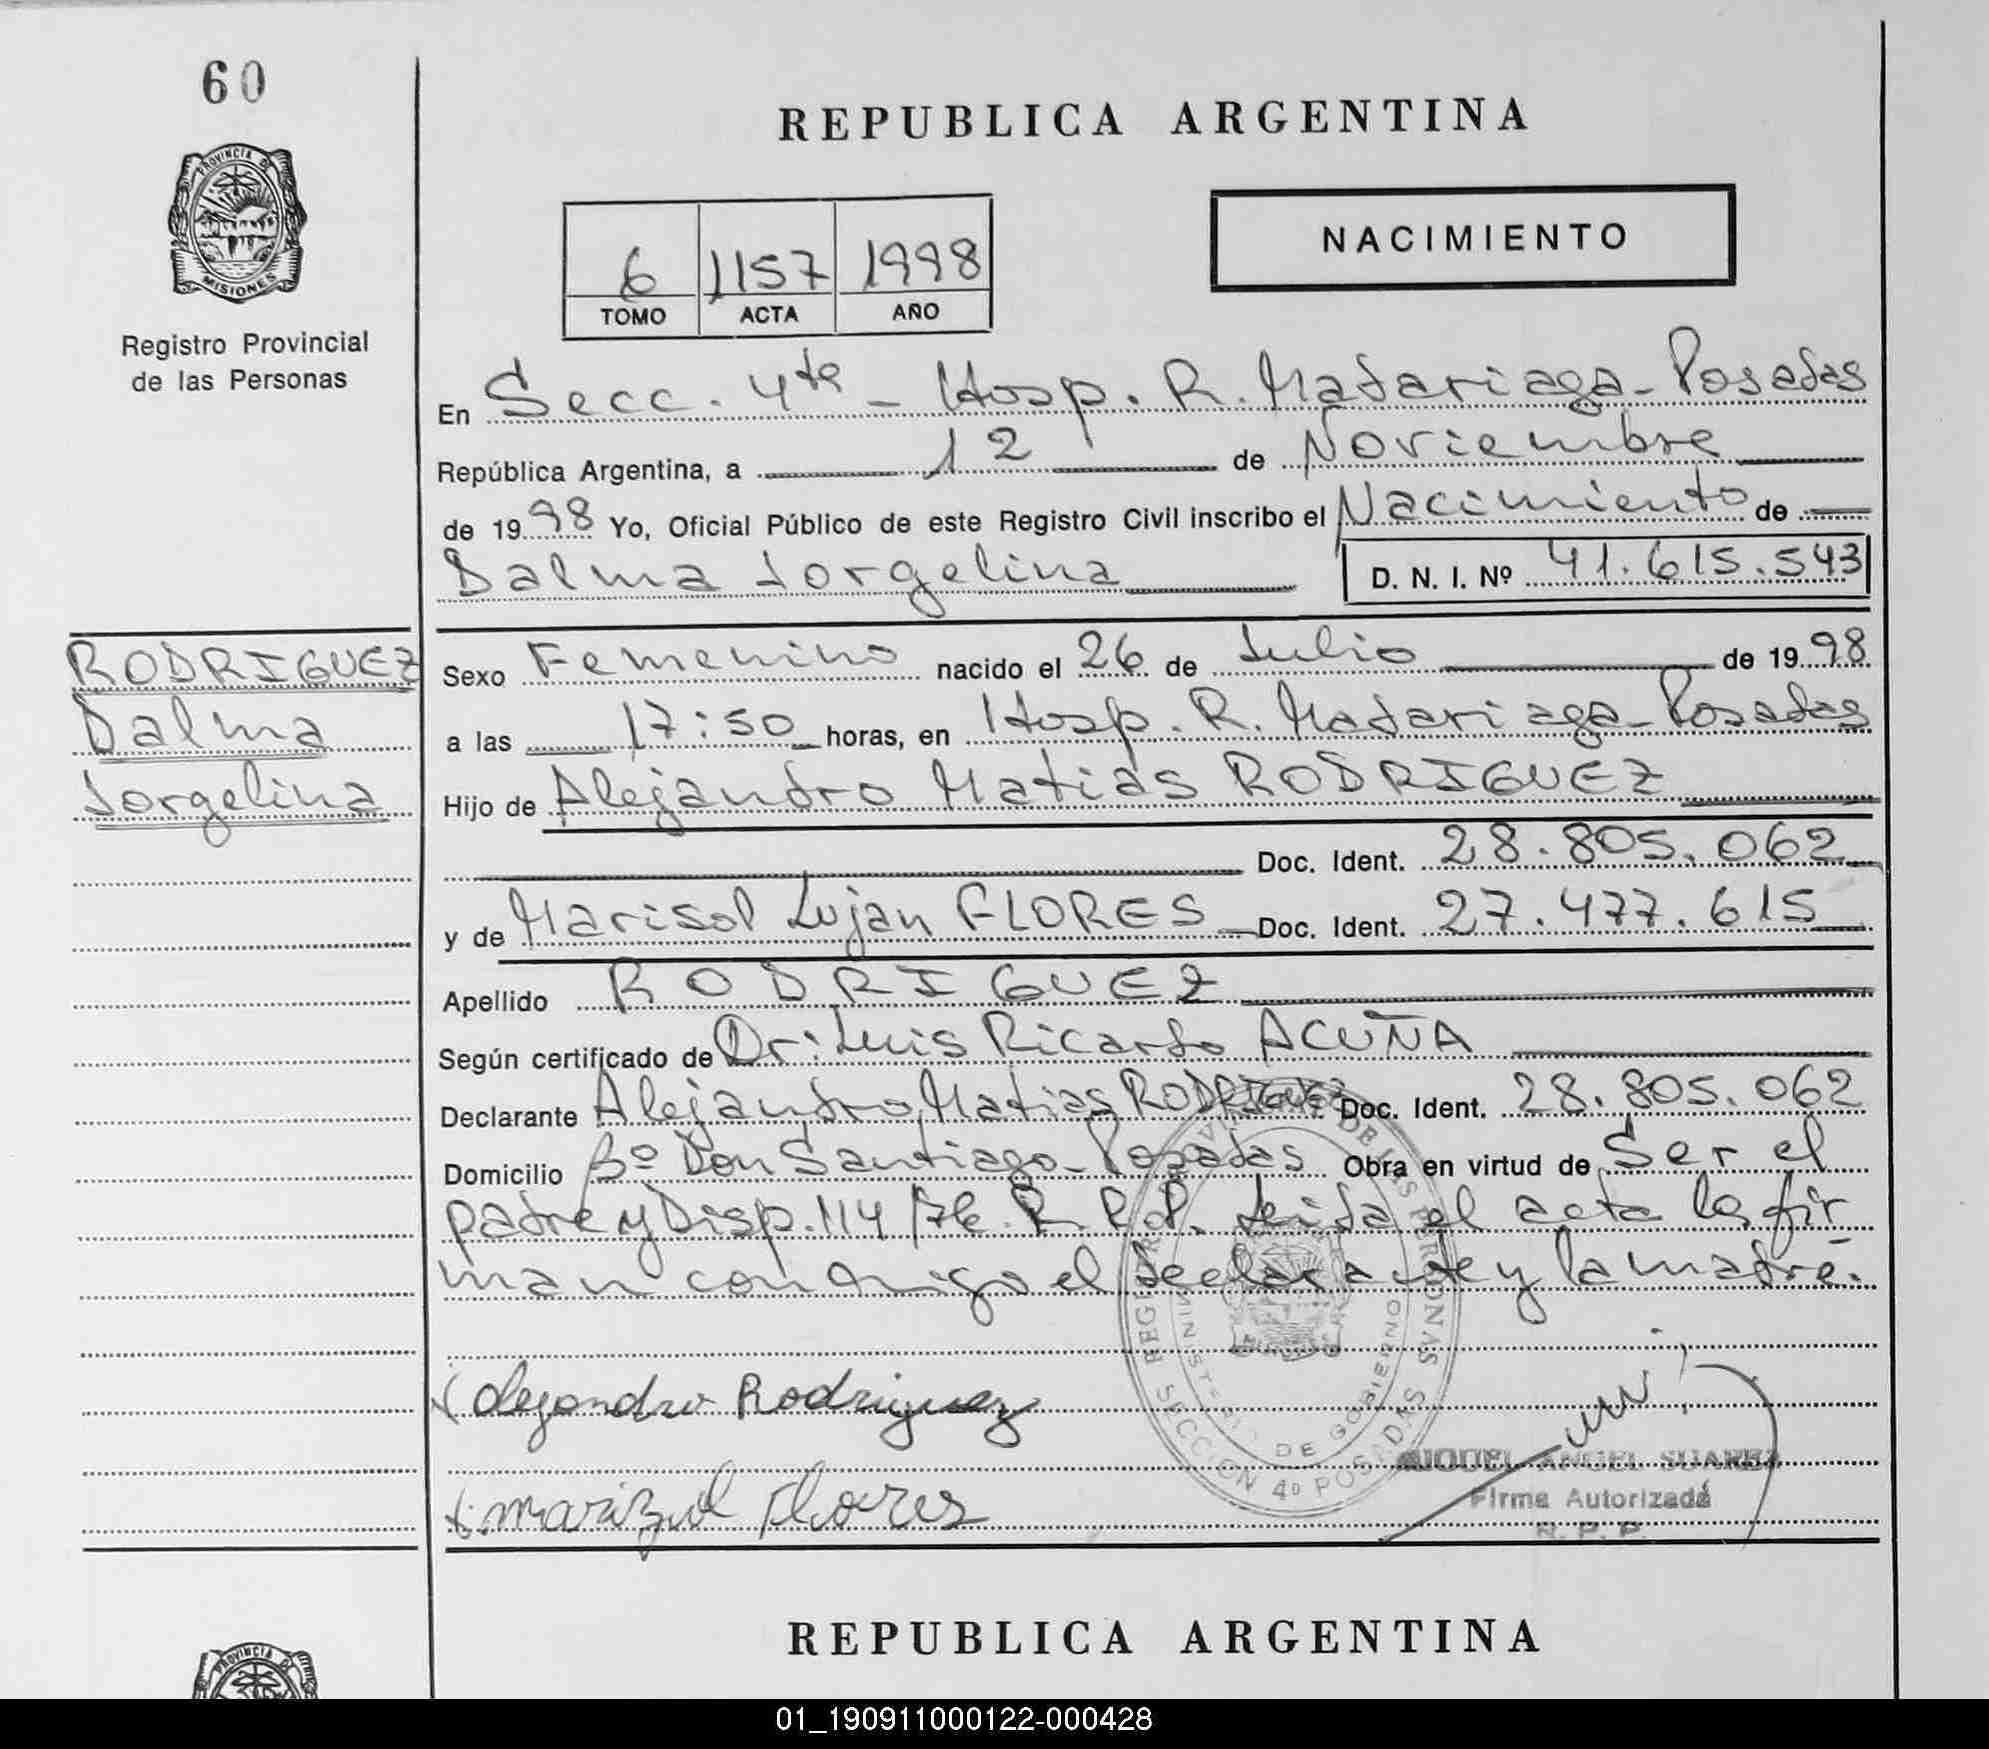 60
PROVINCIA DE
MISIONES
Registro Provincial
de las Personas
REPUBLICA ARGENTINA
6 1157 1998
TOMO ACTA AÑO
NACIMIENTO
En Secc. 4ta - Hosp. R. Madariaga - Posadas
República Argentina, a 12 de Noviembre
de 1998 Yo, Oficial Público de este Registro Civil inscribo el Nacimiento de
Dalma Jorgelina D. N. I. Nº 41.615.543
RODRIGUEZ
Dalma
Jorgelina
Sexo Femenino nacido el 26 de Julio de 1998
a las 17:50 horas, en Hosp. R. Madariaga - Posadas
Hijo de Alejandro Matias RODRIGUEZ
Doc. Ident. 28.805.062
y de Marisol Lujan FLORES Doc. Ident. 27.477.615
Apellido RODRIGUEZ
Según certificado de Dr: Luis Ricardo ACUÑA
Declarante Alejandro Matias RODRIGUEZ Doc. Ident. 28.805.062
Domicilio Bº Don Santiago - Posadas Obra en virtud de Ser el
padre y Disp. 114 R. P. P. Leida el acta la fir
man conmigo el declarante y la madre.
Alejandro Rodriguez
marizol Flores
REGISTRO PROVINCIAL DE LAS PERSONAS
MINISTERIO DE GOBIERNO
SECCION 4º POSADAS
MIGUEL ANGEL SUAREZ
Firma Autorizada
R. P. P.
REPUBLICA ARGENTINA
PROVINCIA DE
01_190911000122-000428